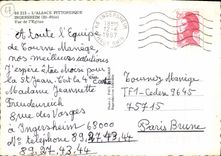 68 213 - L'ALSACE PITTORESQUE
INGERSHEIM (Ht-Rhin)
Vue de l'Eglise
INGERSHEIM
1987
A toute l'Equipe
de Tournez Manège,
nos meilleures salutations
J'espère être choisie pour
la St-Jean. Est la 4ème Code
Madame Jeannette
Freudenreich
8 rue des Vosges
à Ingersheim 68000
No telephone 89.27.43.44
89.27.43.44
Tournez Manège
TF1-Cedex 9645
75715
Paris Brune